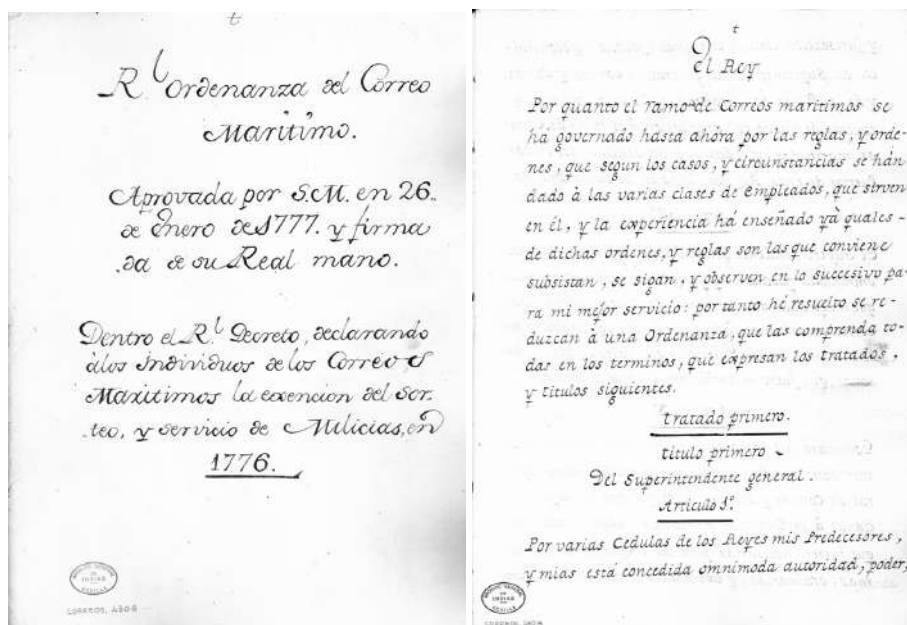 t
R.l Ordenanza del Correo
Maritimo.
Aprovada por S.M. en 26.
de Enero de 1777. y firma
da de su Real mano.
Dentro el R.l Decreto, declarando
à los Individuos de los Correos
Maritimos la exencion del Sor-
teo, y servicio de Milicias, en
1776.
ARCHIVO GENERAL
DE
INDIAS
SEVILLA
CORREOS,
t
El Rey
Por quanto el ramo de Correos maritimos se
há governado hasta ahora por las reglas, y orde-
nes, que segun los casos, y circunstancias se hán
dado à las varias clases de Empleados, que sirven
en él, y la experiencia há enseñado yà quales-
de dichas ordenes, y reglas son las que conviene
subsistan, se sigan, y observen en lo succesivo pa-
ra mi mejor servicio: por tanto hé resuelto se re-
duzcan à una Ordenanza, que las comprenda to-
das en los terminos, que expresan los tratados,
y titulos siguientes.
tratado primero.
titulo primero
Del Superintendente general.
Articulo 1º.
Por varias Cedulas de los Reyes mis Predecesores,
y mias está concedida omnimoda autoridad, poder,
ARCHIVO GENERAL
DE
INDIAS
SEVILLA